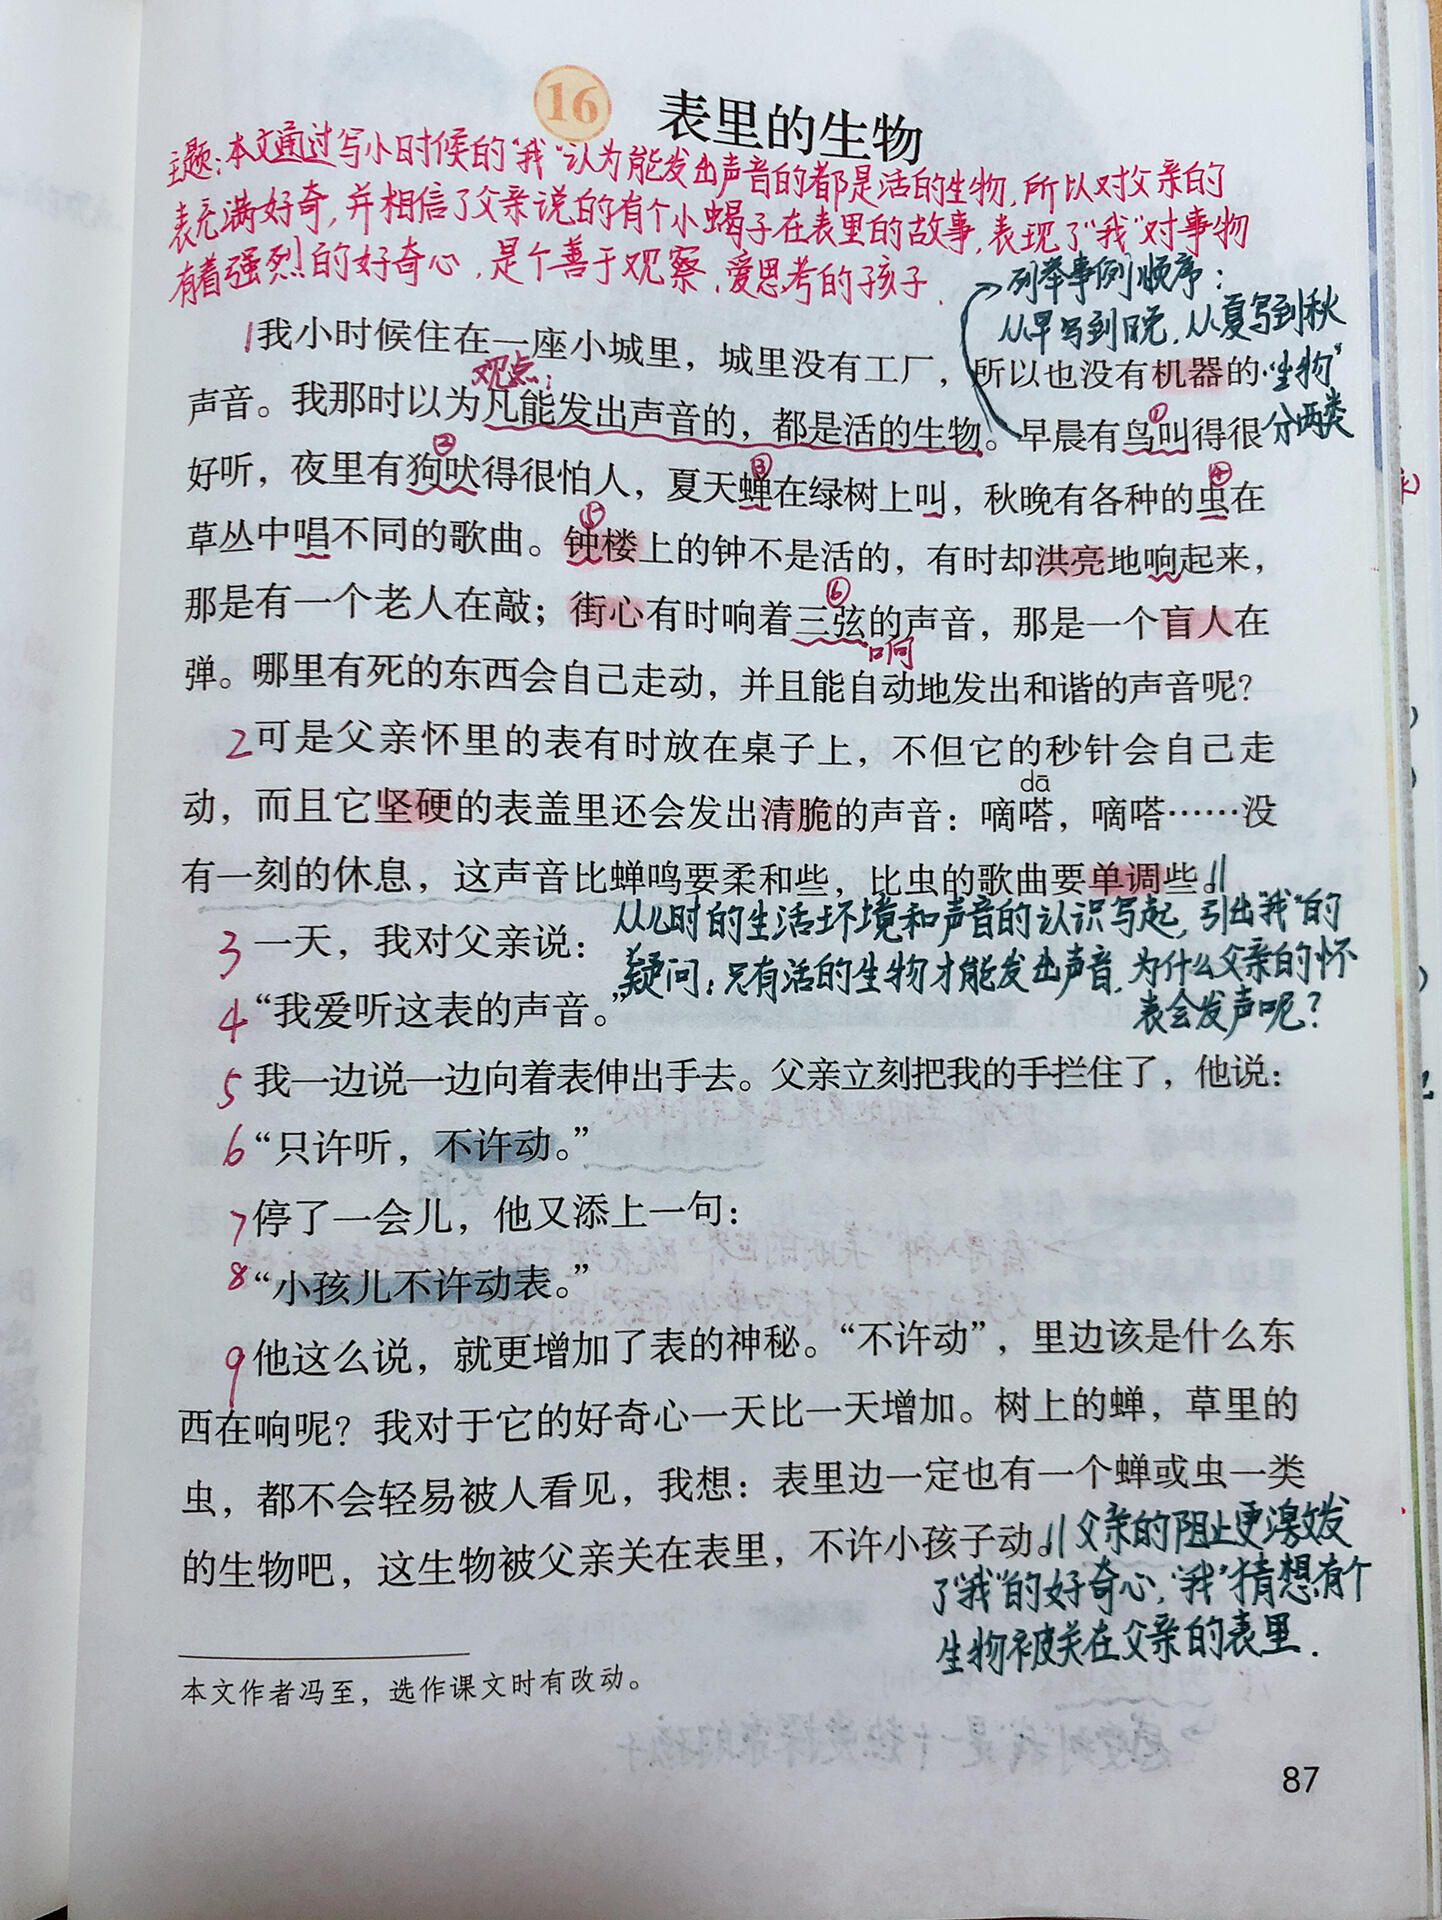 16 表里的生物
主题:本文通过写小时候的“我”认为能发出声音的都是活的生物,所以对父亲的
表充满好奇,并相信了父亲说的有个小蝎子在表里的故事,表现了“我”对事物
有着强烈的好奇心,是个善于观察,爱思考的孩子.
列举事例顺序:
从早写到晚,从夏写到秋
“生物”
分两类
1我小时候住在一座小城里，城里没有工厂，所以也没有机器的
观点:
声音。我那时以为凡能发出声音的，都是活的生物。早晨有鸟叫得很
① ② ③ ④
好听，夜里有狗吠得很怕人，夏天蝉在绿树上叫，秋晚有各种的虫在
⑤
草丛中唱不同的歌曲。钟楼上的钟不是活的，有时却洪亮地响起来，
⑥
那是有一个老人在敲；街心有时响着三弦的声音，那是一个盲人在
响
弹。哪里有死的东西会自己走动，并且能自动地发出和谐的声音呢？
2可是父亲怀里的表有时放在桌子上，不但它的秒针会自己走
dā
动，而且它坚硬的表盖里还会发出清脆的声音：嘀嗒，嘀嗒……没
有一刻的休息，这声音比蝉鸣要柔和些，比虫的歌曲要单调些。//
从儿时的生活环境和声音的认识写起,引出“我”的
疑问:只有活的生物才能发出声音,为什么父亲的怀
表会发声呢?
3一天，我对父亲说：
4“我爱听这表的声音。”
5我一边说一边向着表伸出手去。父亲立刻把我的手拦住了，他说：
6“只许听，不许动。”
7停了一会儿，他又添上一句：
8“小孩儿不许动表。”
9他这么说，就更增加了表的神秘。“不许动”，里边该是什么东
西在响呢？我对于它的好奇心一天比一天增加。树上的蝉，草里的
虫，都不会轻易被人看见，我想：表里边一定也有一个蝉或虫一类
的生物吧，这生物被父亲关在表里，不许小孩子动。//父亲的阻止更激发
了“我”的好奇心,“我”猜想有个
生物被关在父亲的表里.
本文作者冯至，选作课文时有改动。
87